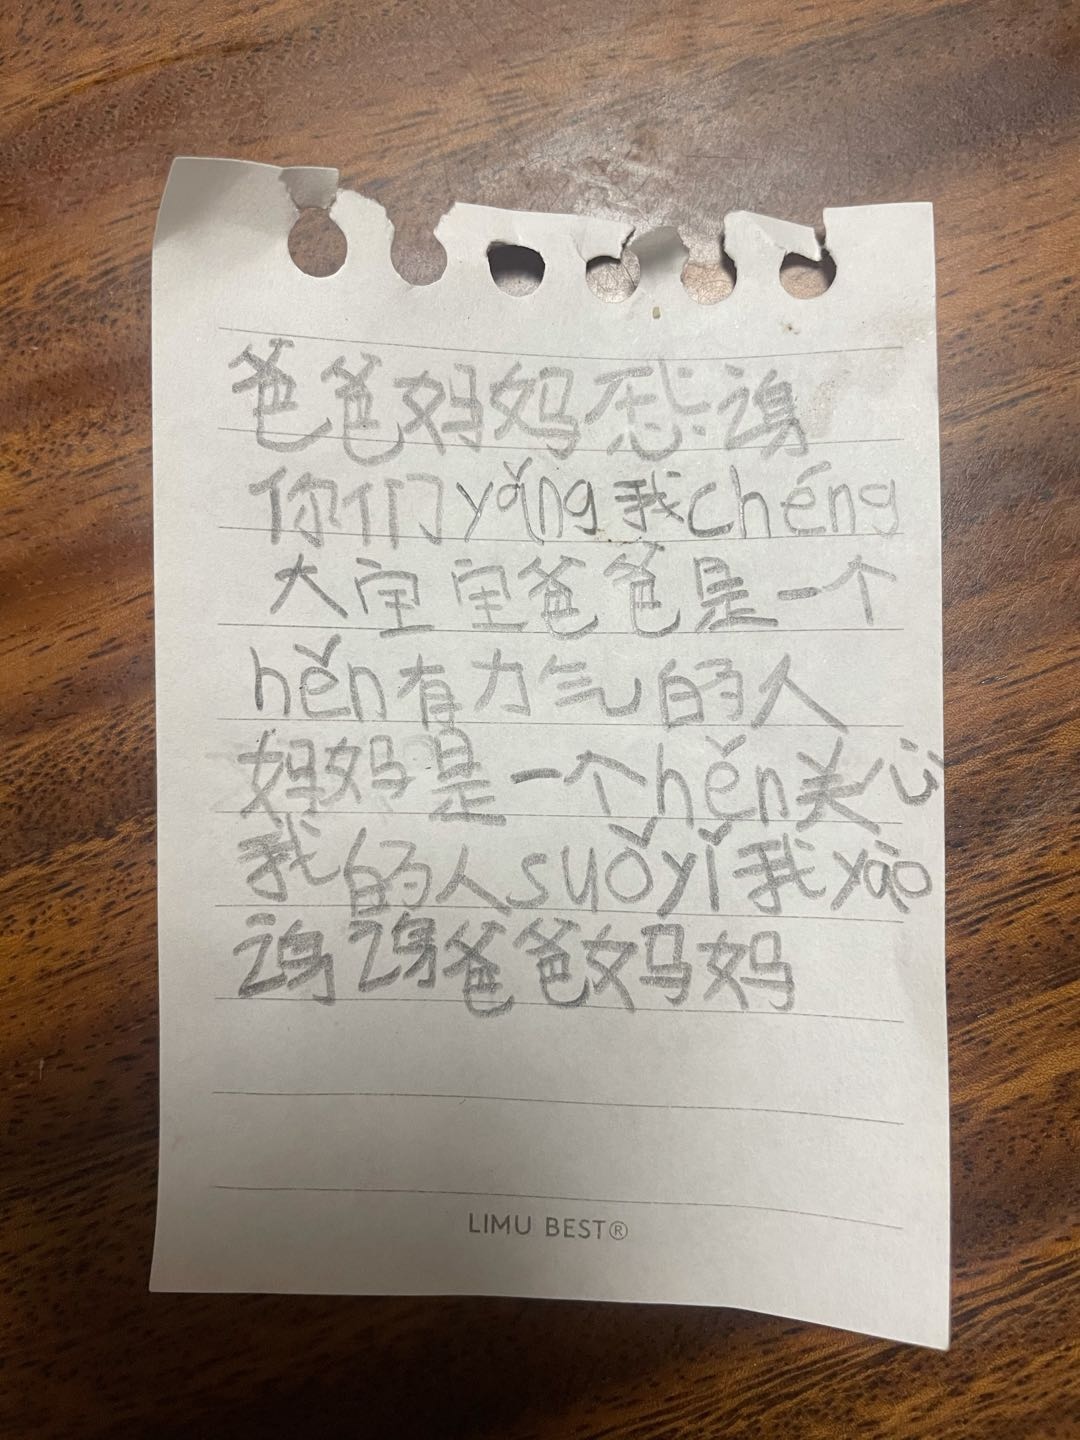 爸爸妈妈感谢
你们yǎng我chéng
大宝宝爸爸是一个
hěn有力气的人
妈妈是一个hěn关心
我的人suǒyǐ我yào
谢谢爸爸妈妈
LIMU BEST®